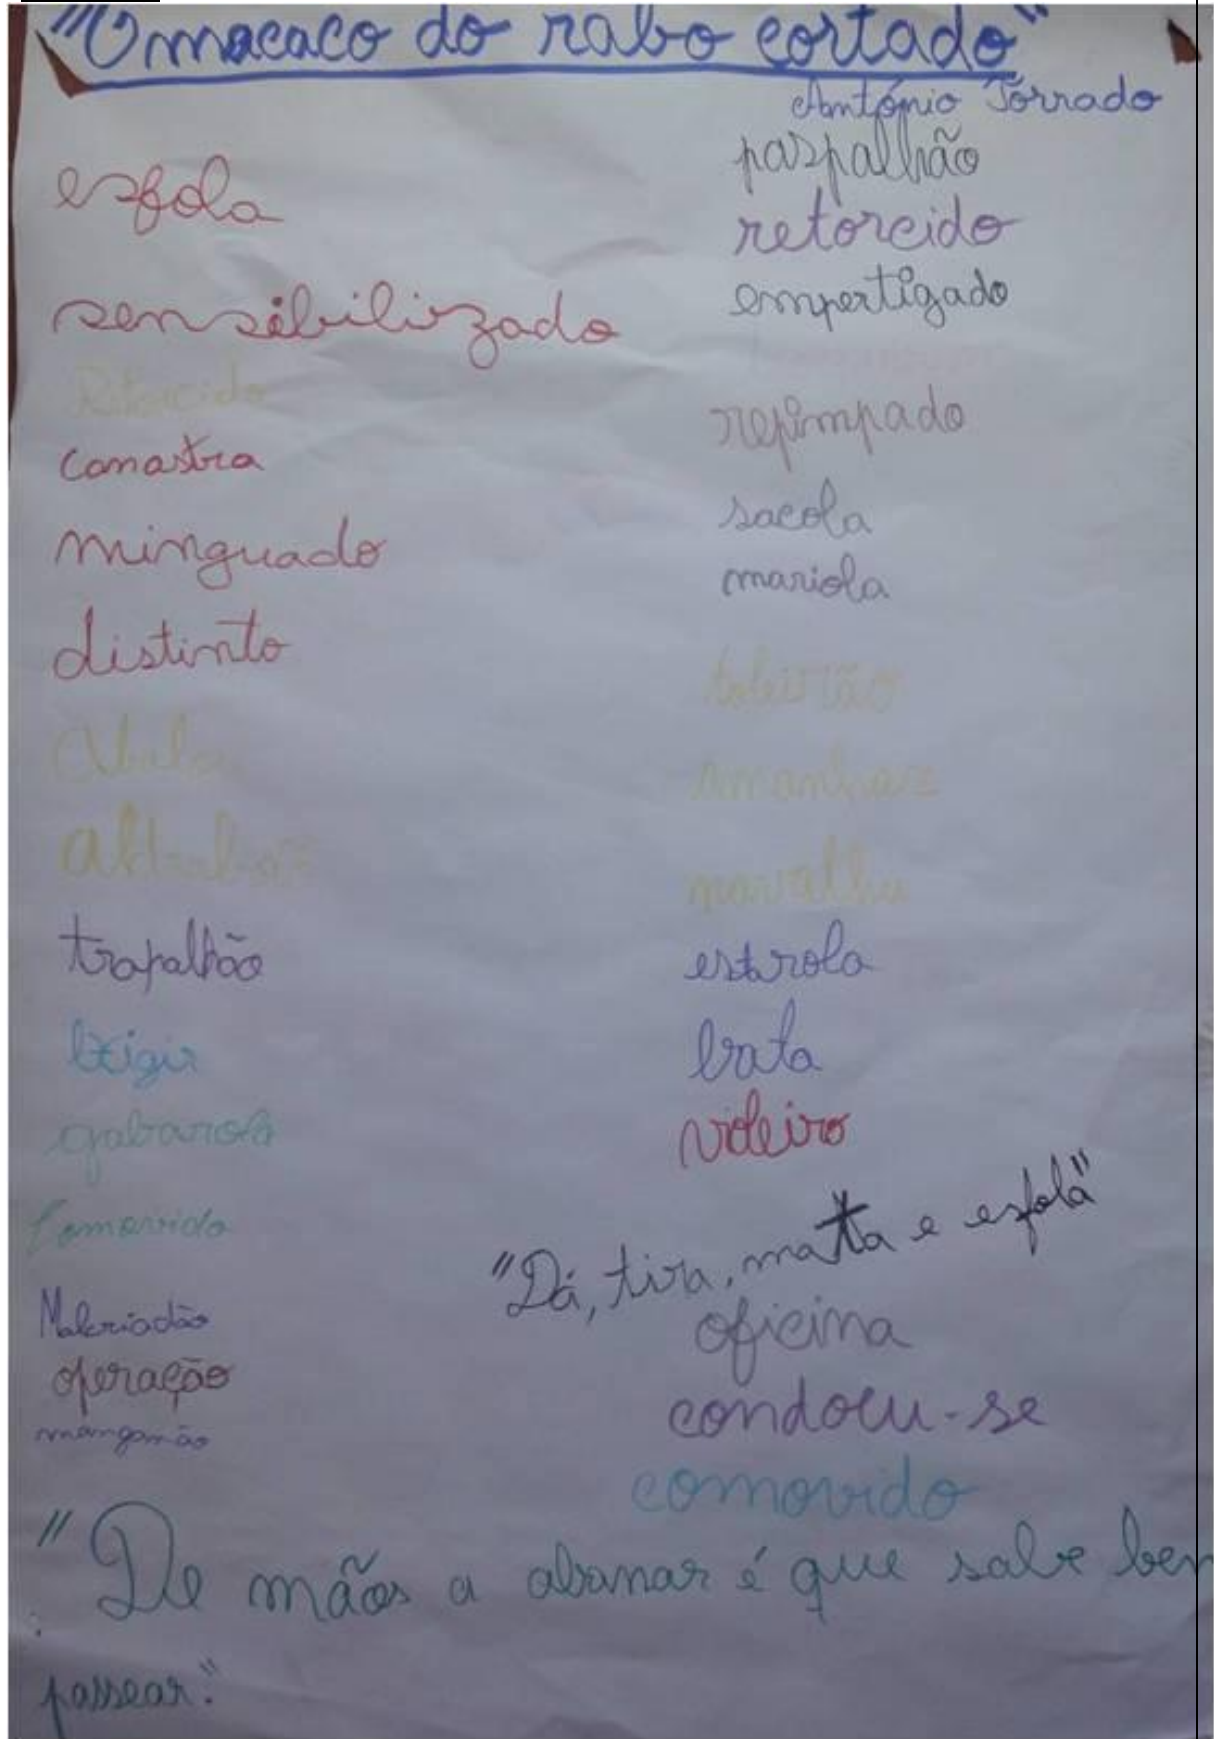 "O macaco do rabo cortado"
António Torrado
esfola
sensibilizado
Retorcido
canastra
minguado
distinto
trapalhão
Exigir
gabarola
Comovido
Malcriadão
operação
mangamão
paspalhão
retorcido
empertigado
repimpado
sacola
mariola
navalha
estrola
bata
videiro
"Dá, tira, matta e esfola"
oficina
condoeu-se
comovido
"De mãos a abanar é que sabe bem
passear."